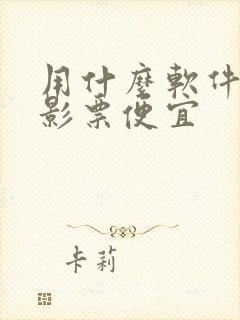 用什麼軟件
影票便宜
卡莉